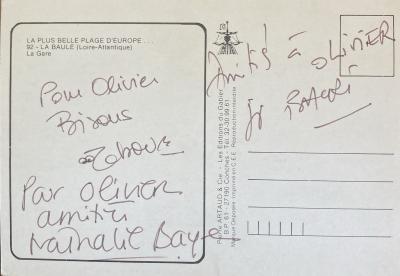 LA PLUS BELLE PLAGE D'EUROPE . . .
92 - LA BAULE (Loire-Atlantique)
La Gare
Pour Olivier
Bisous
Par OLIVIER
amitiés
Nathalie Baye
Amitié à OLIVIER
Pierre ARTAUD & Cie - Les Editions du Gabier
B.P. 61 - 27190 Conches - Tél. 32.30.99.61
Marque Déposée - Imprimé en C.E.E. Reproduction interdite